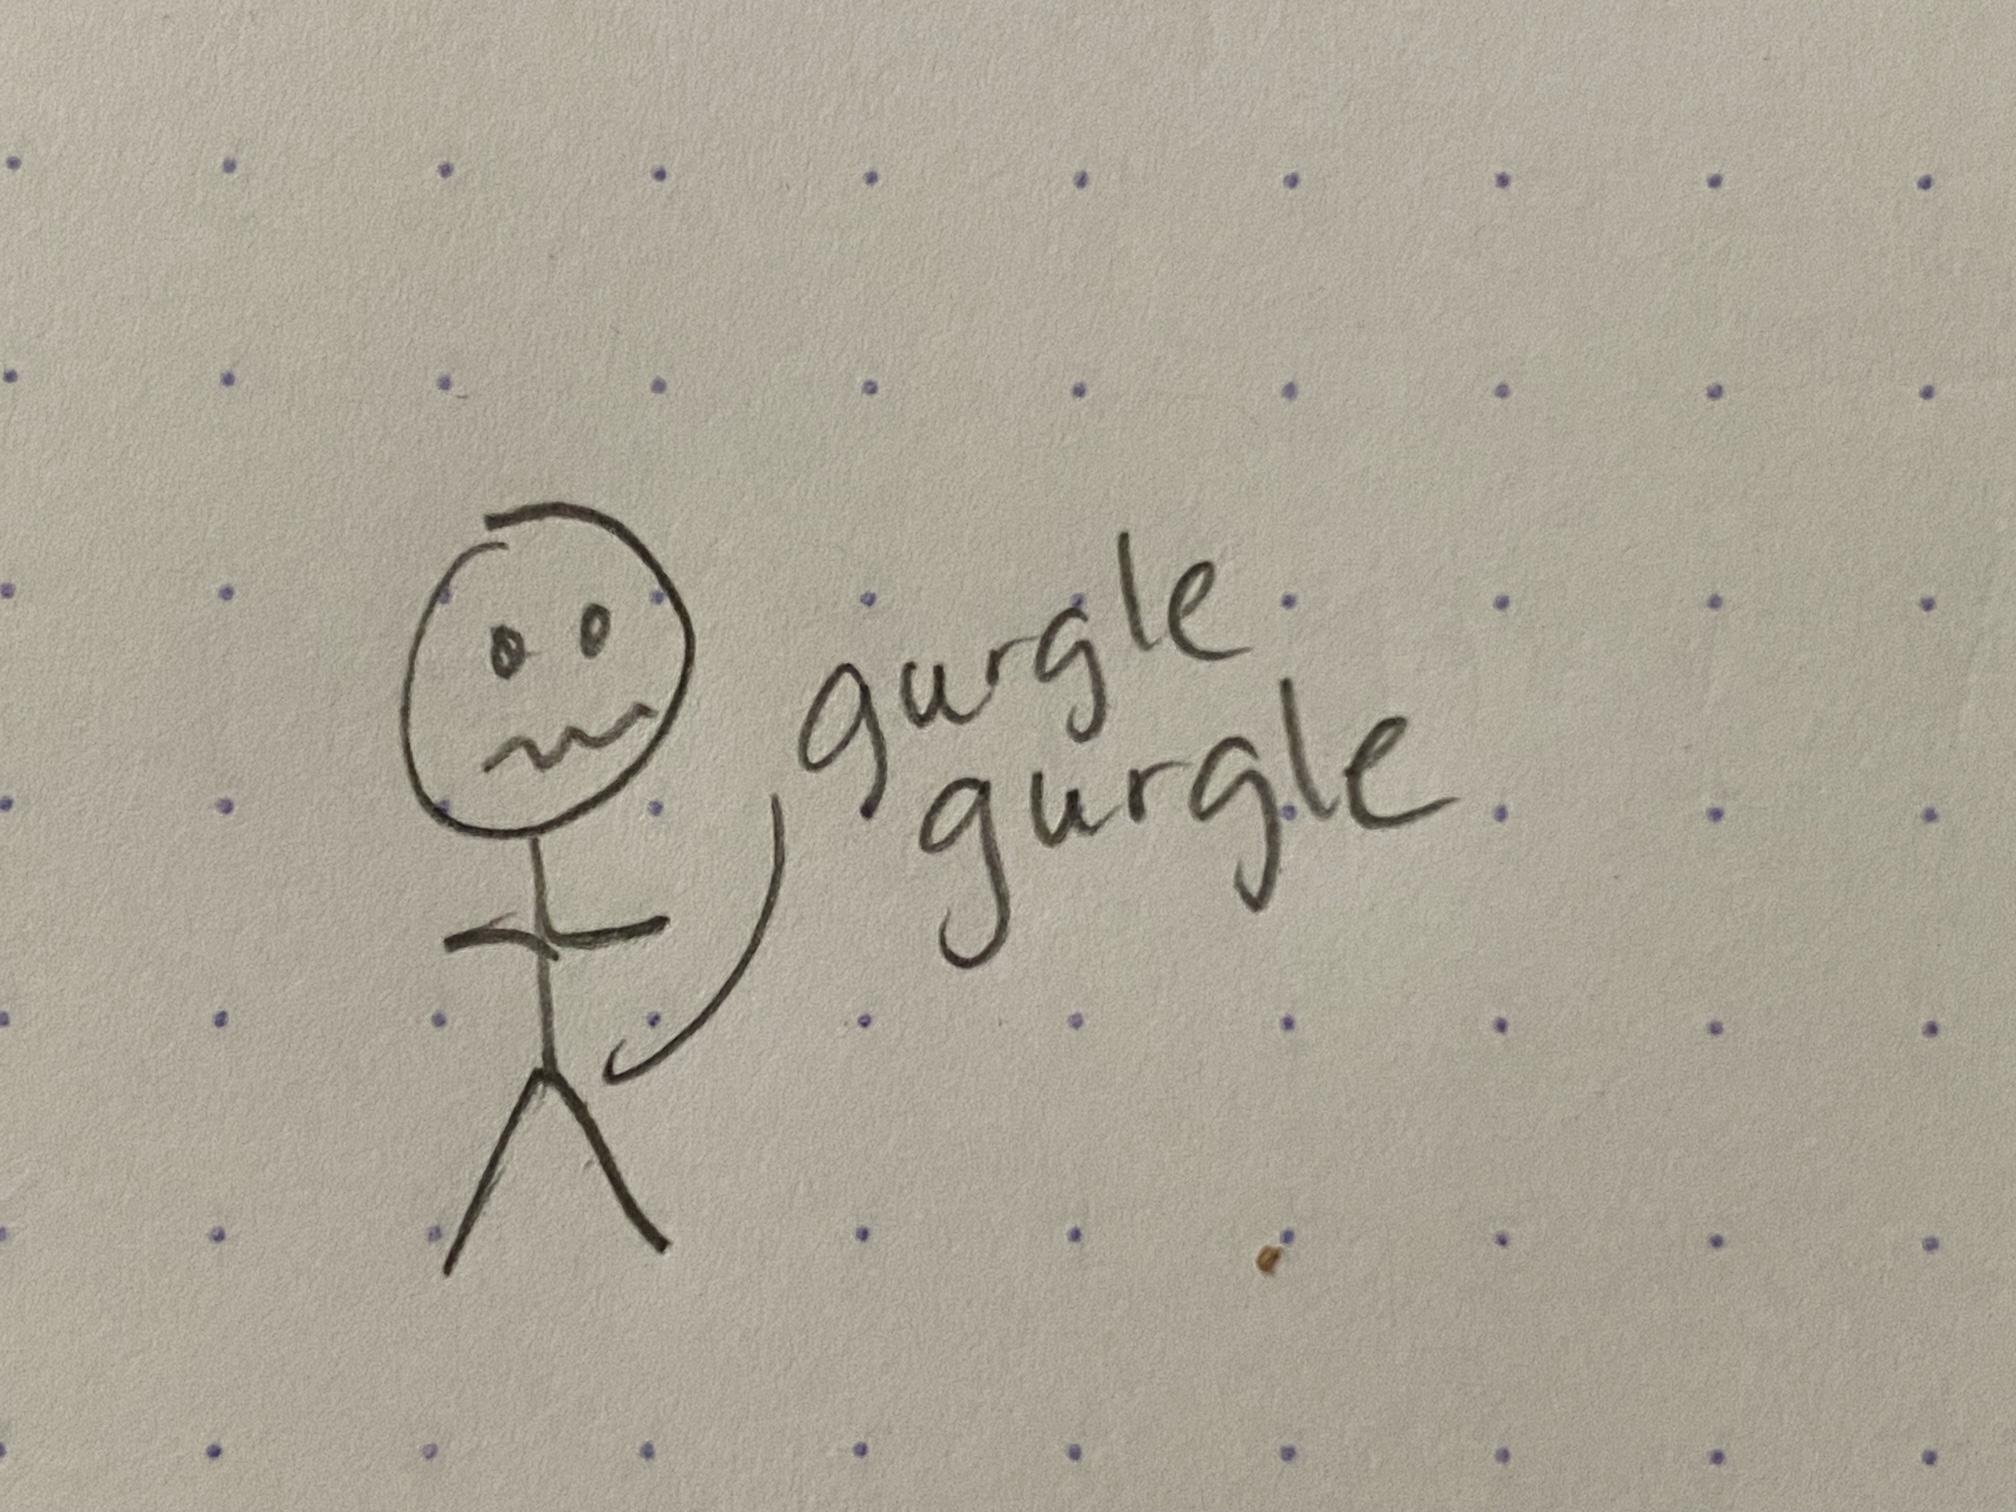 gurgle
gurgle